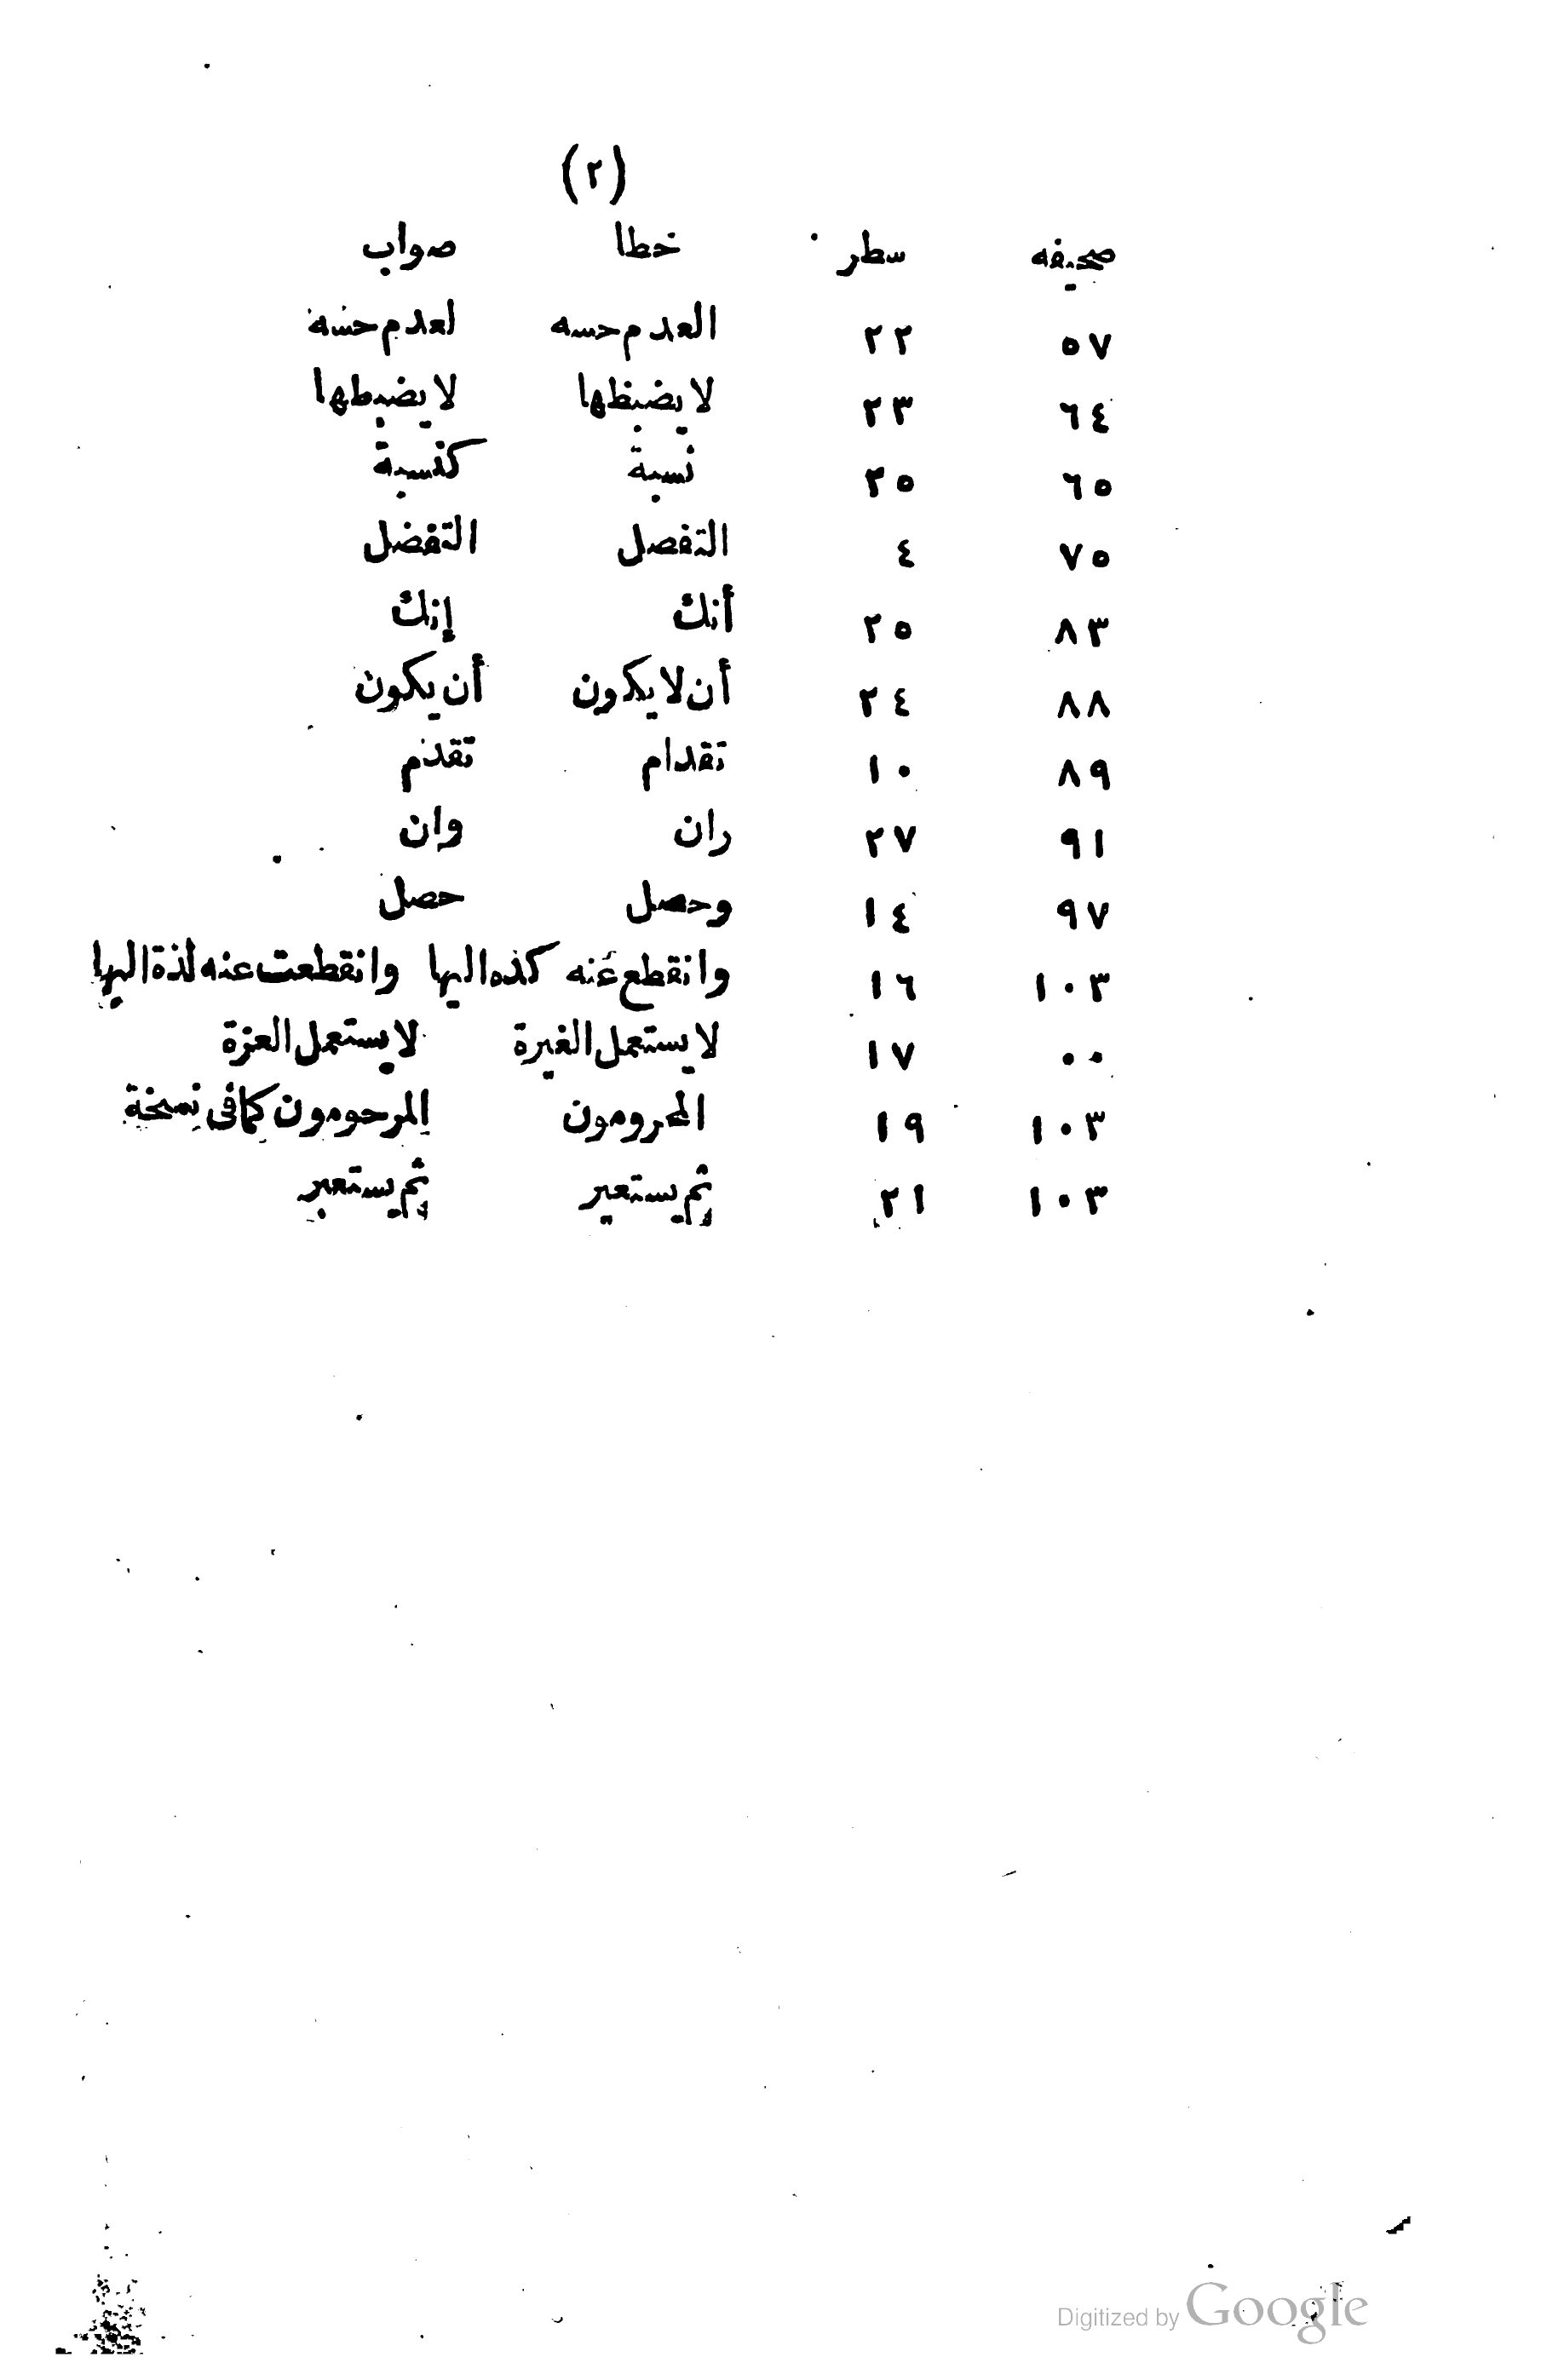 (٢)
صحيفه سطر خطا صواب
٥٧ ٢٢ العدم حسه لعدم حسه
٦٤ ٢٣ لا يضبظها لا يضبطها
٦٥ ٢٥ نسبة كنسبة
٧٥ ٤ التفصل التفضل
٨٣ ٢٥ أنك إنك
٨٨ ٢٤ أن لا يكون أن يكون
٨٩ ١٠ تقدام تقدم
٩١ ٢٧ ران وان
٩٧ ١٤ وحصل حصل
١٠٣ ١٦ وانقطع عنه كذه اليها وانقطعت عنه لذة اليها
٠٠ ١٧ لا يستعمل الغيرة لا يستعمل العزة
١٠٣ ١٩ المحرومون المرحومون كما فى نسخة
١٠٣ ٢١ ثم يستعير ثم يستعبر
Digitized by Google